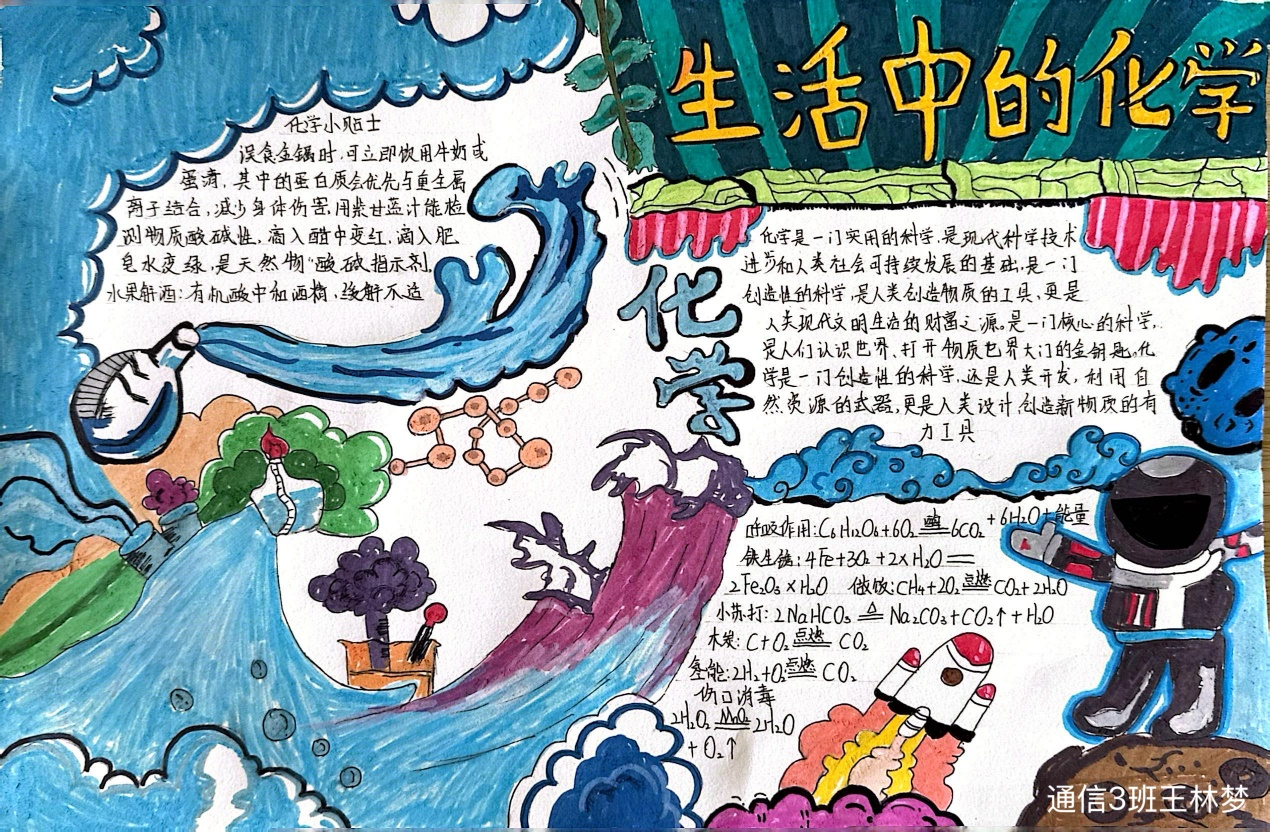 生活中的化学
化学小贴士
误食金属时,可立即饮用牛奶或
蛋清,其中的蛋白质会优先与重金属
离子结合,减少身体伤害,用紫甘蓝汁能检
测物质酸碱性,滴入醋中变红,滴入肥
皂水变绿,是天然物"酸碱指示剂。
水果解酒:有机酸中和酒精,缓解不适
化学
化学是一门实用的科学,是现代科学技术
进步和人类社会可持续发展的基础,是一门
创造性的科学,是人类创造物质的工具,更是
人类现代文明生活的财富之源。是一门核心的科学,
是人们认识世界、打开物质世界大门的金钥匙。化
学是一门创造性的科学,还是人类开发,利用自
然资源的武器,更是人类设计,创造新物质的有
力工具
呼吸作用:C6H12O6+6O2 酶══ 6CO2+6H2O+能量
铁生锈:4Fe+3O2+2xH2O══
2Fe2O3xH2O 做饭:CH4+2O2 点燃══ CO2+2H2O
小苏打:2NaHCO3 △══ Na2CO3+CO2↑+H2O
木炭:C+O2 点燃══ CO2
氢能:2H2+O2 点燃══ CO2
伤口消毒
2H2O2 MnO2══ 2H2O
+O2↑
通信3班王林梦